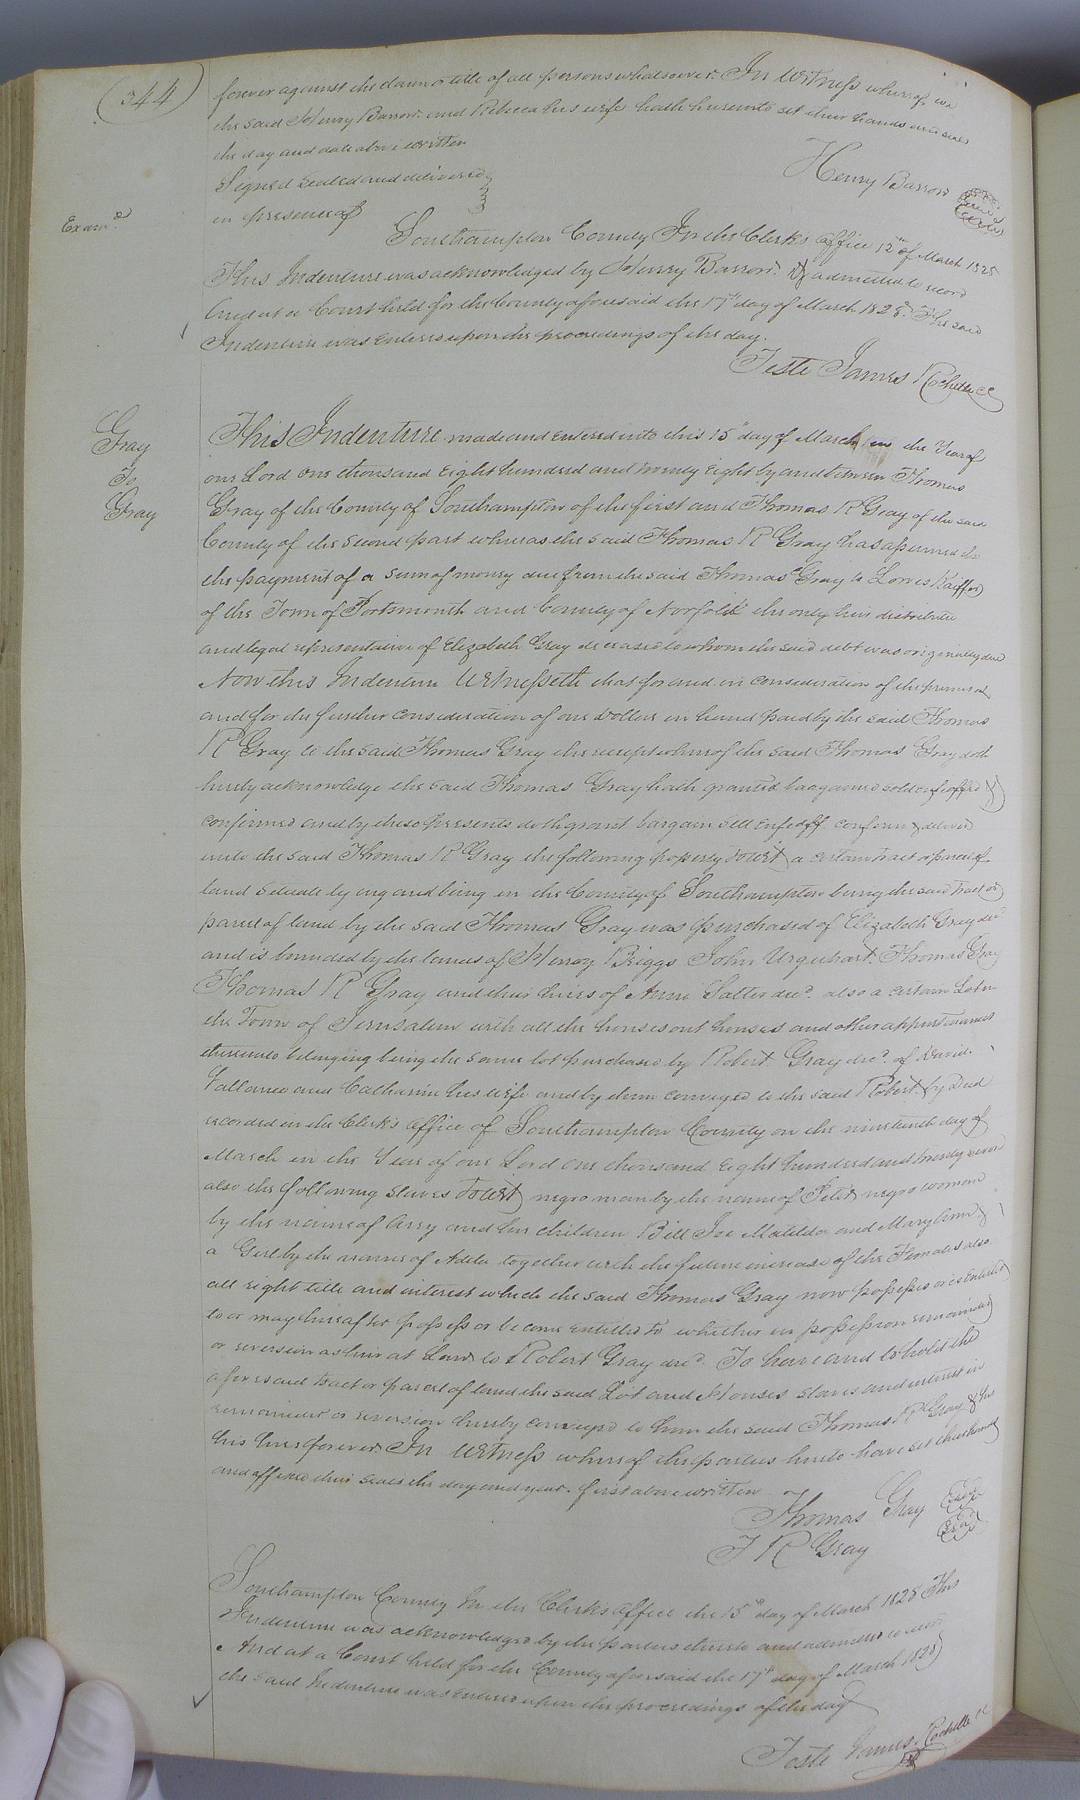 (344)
forever against the claim & title of all persons whatsoever. In Witness whereof we
the said Henry Barrow and Rebecca his wife hath hereunto set their hands and seals
the day and date above written
Signed Sealed and delivered
in presence of
Henry Barrow
Exam.d
Southampton County In the Clerk's Office 12th of March 1828
This Indenture was acknowledged by Henry Barrow & admitted to record
And at a Court held for the County aforesaid the 17th day of March 1828. The said
Indenture was entered upon the proceedings of the day.
Teste James Rochelle CC
Gray
To
Gray
This Indenture made and entered into this 15th day of March in the Year of
our Lord one thousand Eight hundred and twenty Eight by and between Thomas
Gray of the County of Southampton of the first and Thomas R Gray of the said
County of the Second part whereas the said Thomas R Gray has assumed the
the payment of a sum of money due from the said Thomas Gray to Lewis
of the Town of Portsmouth and County of Norfolk the only heir distributee
and legal representative of Elizabeth Gray deceased to whom the said debt was originally due
Now this Indenture Witnesseth that for and in consideration of the premises
and for the further consideration of one Dollar in hand paid by the said Thomas
R Gray to the said Thomas Gray the receipt whereof the said Thomas Gray doth
hereby acknowledge the said Thomas Gray hath granted bargained sold enfeoffed &
confirmed and by these presents doth grant bargain sell enfeoff confirm & deliver
unto the said Thomas R Gray the following property towit, a certain tract or parcel of
land Situate lying and being in the County of Southampton being the said tract or
parcel of land by the said Thomas Gray was purchased of Elizabeth Gray decd
and is bounded by the lands of Henry Briggs John Urquhart, Thomas Gray
Thomas R Gray and their heirs of Anne Salter decd. also a certain Lot in
the Town of Jerusalem with all the houses out houses and other appurtenances
thereunto belonging being the same lot purchased by Robert Gray decd. of David
and Catharine his wife and by them conveyed to the said Robert by Deed
recorded in the Clerk's Office of Southampton County on the nineteenth day of
March in the Year of our Lord one thousand Eight hundred and twenty seven
also the following slaves towit, negro man by the name of Peter negro woman
by the name of Arry and her children Bill Joe Matilda and Mary Ann &
a Girl by the name of Adela together with the future increase of the Females also
all right title and interest which the said Thomas Gray now possesses or is Entitled
to or may hereafter possess or become Entitled to whether in possession remainder
or reversion as heir at Law to Robert Gray decd. To have and to hold the
aforesaid tract or parcel of land the said Lot and Houses slaves and interest in
remainder or reversion hereby conveyed to him the said Thomas R Gray & his
his heirs forever In Witness whereof the parties hereto have set their hands
and affixed their seals the day and year first above written
Thomas Gray Seal
T R Gray Seal
Southampton County In the Clerk's Office the 15th day of March 1828 This
Indenture was acknowledged by the parties thereto and admitted to record
And at a Court held for the County aforesaid the 17th day of March 1828
the said Indenture was entered upon the proceedings of the day
Teste James Rochelle CC